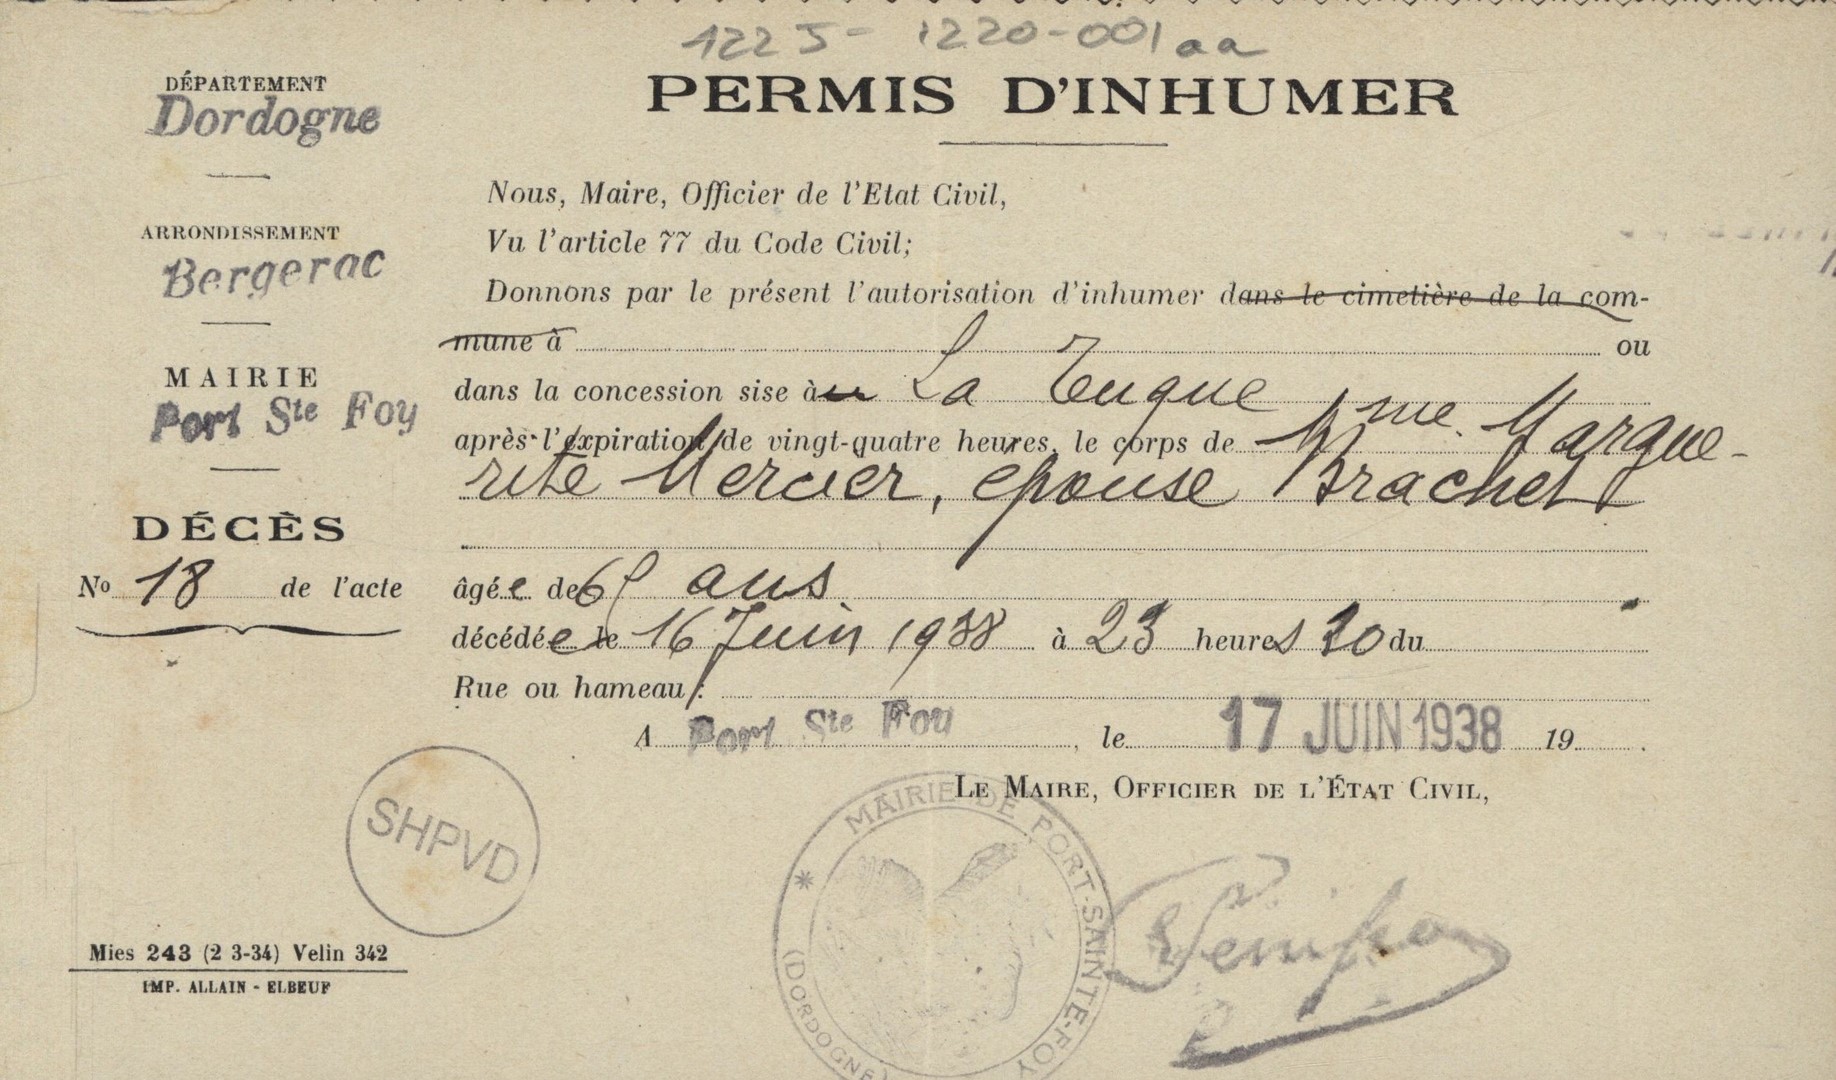 1225 - 1220-001 aa
DÉPARTEMENT
Dordogne
ARRONDISSEMENT
Bergerac
MAIRIE
Port Ste Foy
DÉCÈS
No 18 de l'acte
PERMIS D'INHUMER
Nous, Maire, Officier de l'Etat Civil,
Vu l'article 77 du Code Civil;
Donnons par le présent l'autorisation d'inhumer dans le cimetière de la com-
mune à ou
dans la concession sise à La Tuque
après l'expiration de vingt-quatre heures, le corps de Mme. Margue-
rite Mercier, épouse Brachet
âgée de ans
décédée le 16 Juin 1938 à 23 heures du
Rue ou hameau :
A Port Ste Foy, le 17 JUIN 1938 19 .
LE MAIRE, OFFICIER DE L'ÉTAT CIVIL,
SHPVD
MAIRIE DE PORT-SAINTE-FOY
* (DORDOGNE)
Mies 243 (2 3-34) Velin 342
IMP. ALLAIN - ELBEUF